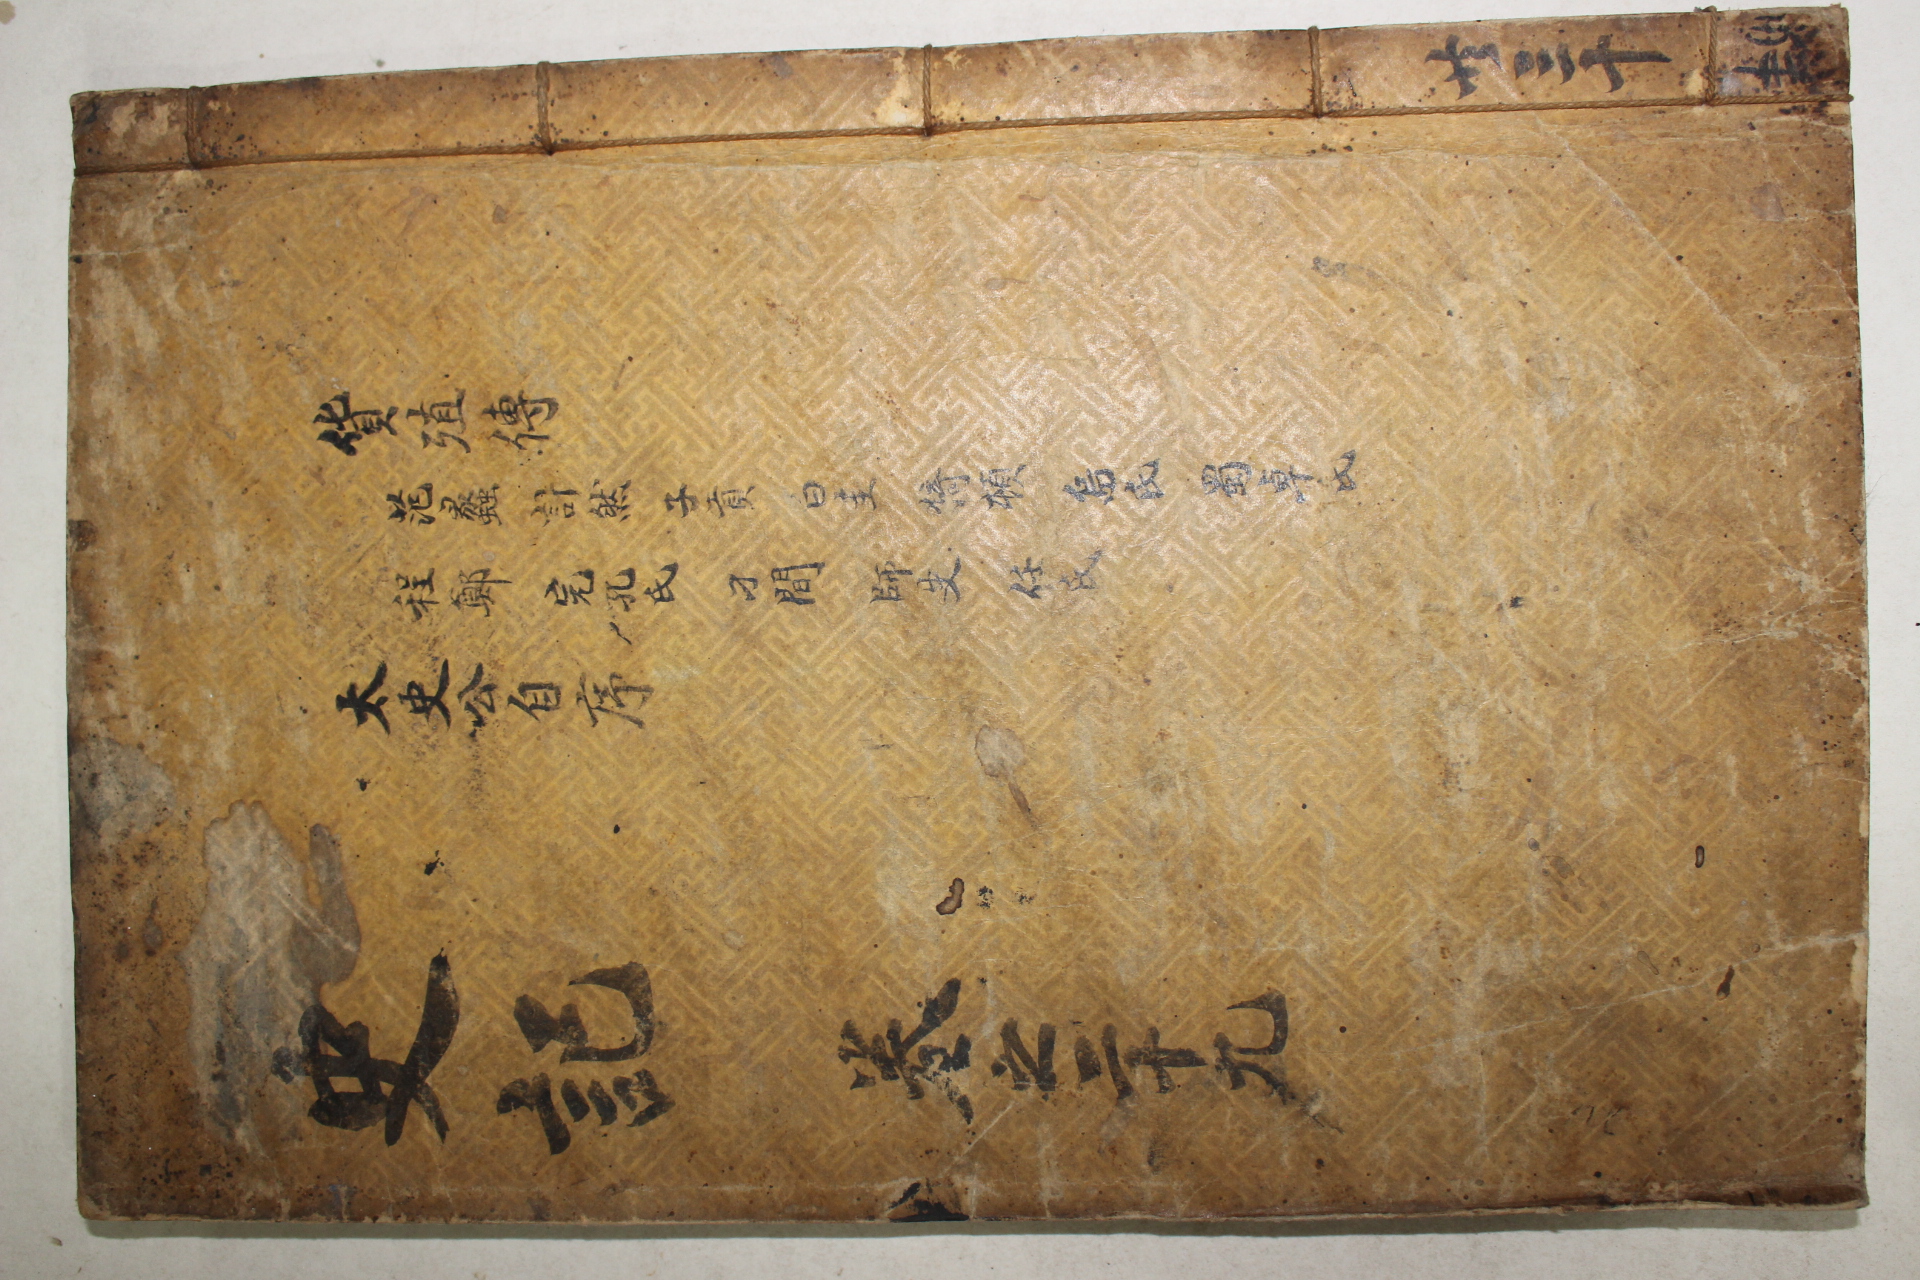 共三十
貨殖傳
范蠡 計然 子貢 白圭 猗頓 烏氏 蜀卓氏
程鄭 完孔氏 刁間 師史 任氏
太史公自序
史記 卷之二十九